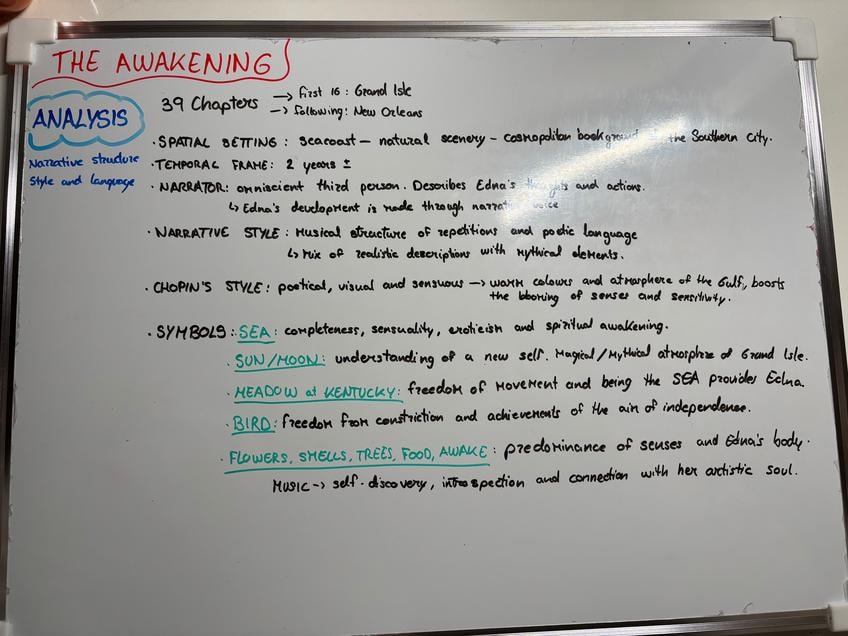 THE AWAKENING
ANALYSIS
Narrative structure
Style and language
39 Chapters → First 16 : Grand Isle
→ Following : New Orleans
· SPATIAL SETTING : seacoast – natural scenery – cosmopolitan background the Southern City.
· TEMPORAL FRAME : 2 years ±
· NARRATOR : omniscient third person. Describes Edna's and actions.
↳ Edna's development is made through voice
· NARRATIVE STYLE : Musical structure of repetitions and poetic language
↳ Mix of realistic descriptions with mythical elements.
· CHOPIN'S STYLE : poetical, visual and sensuous → warm colours and atmosphere of the Gulf, boosts
the blooming of senses and sensitivity.
· SYMBOLS : SEA : completeness, sensuality, eroticism and spiritual awakening.
· SUN/MOON : understanding of a new self. Magical/Mythical atmosphere of Grand Isle.
· MEADOW at KENTUCKY : freedom of movement and being the SEA provides Edna.
· BIRD : freedom from constriction and achievements of the aim of independence.
· FLOWERS, SMELLS, TREES, FOOD, AWAKE : predominance of senses and Edna's body.
MUSIC → self-discovery, introspection and connection with her artistic soul.